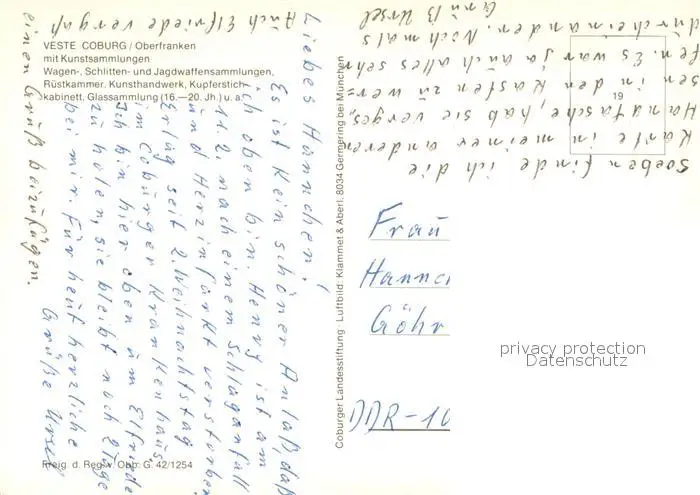 VESTE COBURG / Oberfranken
mit Kunstsammlungen
Wagen-, Schlitten- und Jagdwaffensammlungen,
Rüstkammer. Kunsthandwerk, Kupferstich-
kabinett, Glassammlung (16.—20. Jh.) u. a.
Liebes Hannchen!
Es ist kein schöner Anlaß, daß
ich oben bin. Henry ist am
11.2. nach einem Schlaganfall
und Herzinfarkt verstorben.
Er lag seit 2. Weihnachtstag
im Coburger Krankenhaus.
Ich bin hier oben um Elfriede
zu holen, sie bleibt noch 2 Tage
bei mir. Für heut herzliche
Grüße Ursel
Auch Elfriede vergaß
einen Gruß beizufügen.
Soeben finde ich die
Karte in meiner anderen
Handtasche, hab sie verges,
sen in den Kasten zu wer=
fen. Es war ja auch alles sehr
durcheinander. Nochmals
Gruß Ursel
19
Coburger Landesstiftung · Luftbild: Klammet & Aberl, 8034 Germering bei München
Frau
Hannch
Göhr
DDR-10
privacy protection
Datenschutz
Freig. d. Reg. v. Obb. G. 42/1254